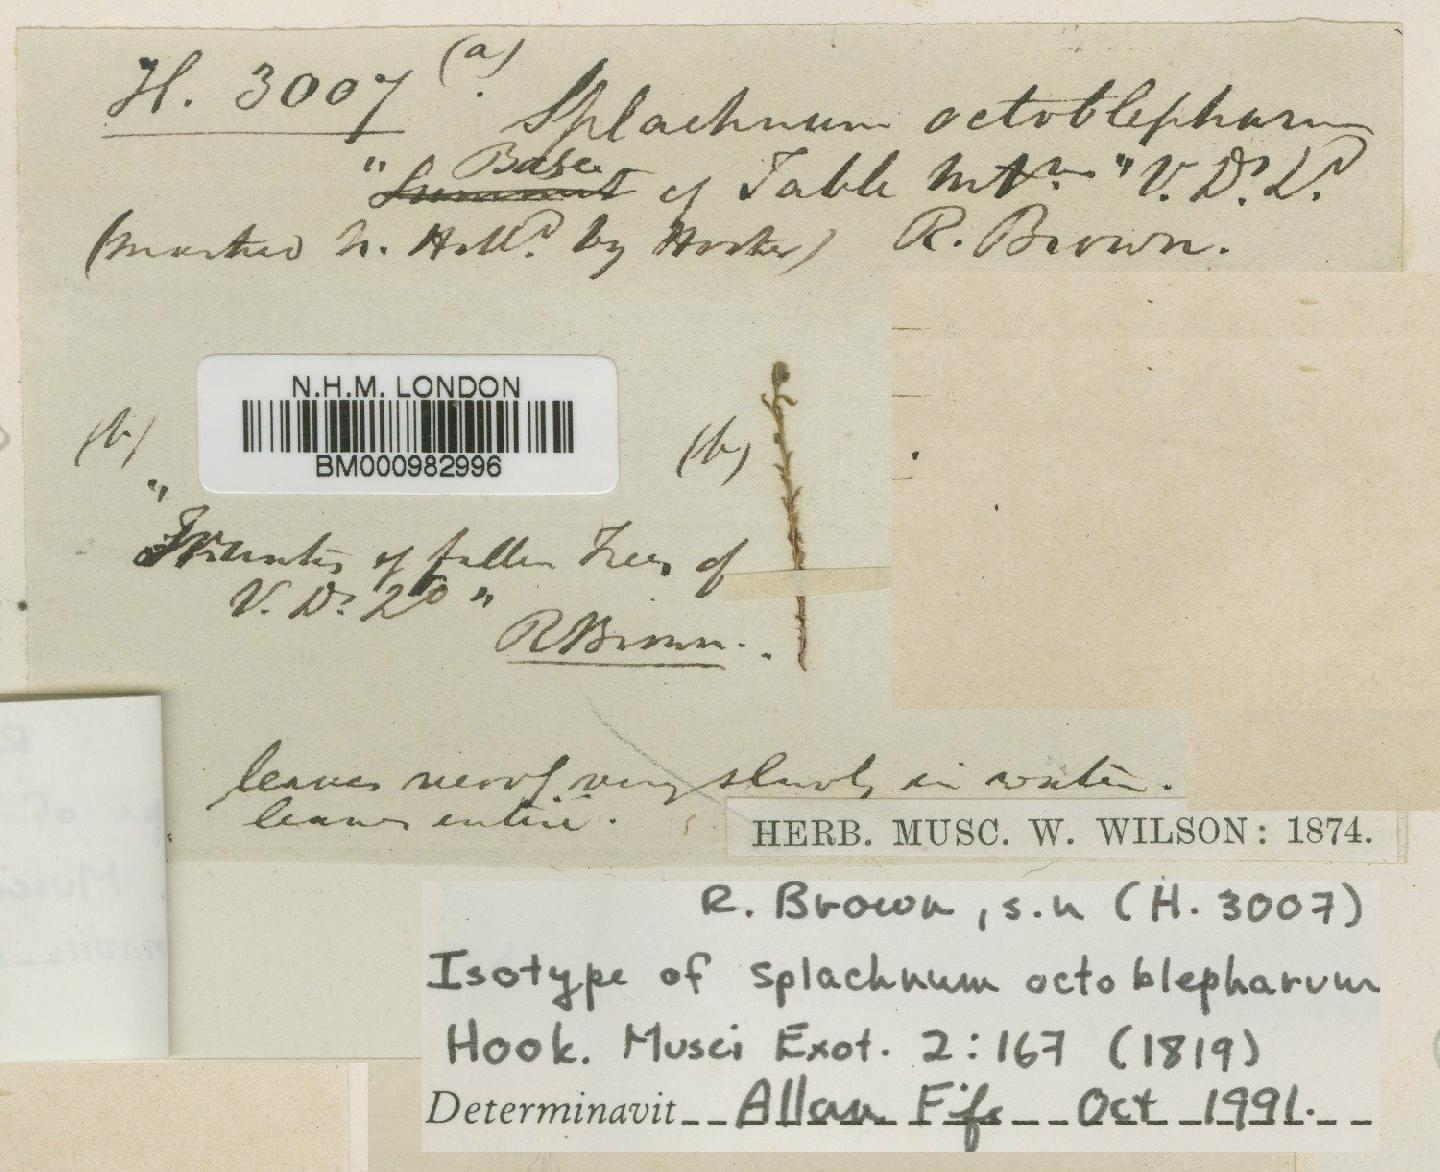 H. 3007 (a). Splachnum octoblepharum
" Base
Summit of Table Mtn " V. D.s L.d
(marked N. Holl.d by Hooker) R. Brown.
N.H.M. LONDON
BM000982996
(b) (b)
"Trunks of fallen Trees of
V. D.s L.d "
R Brown.
leaves revolve very slowly in water.
leaves entire.
HERB. MUSC. W. WILSON: 1874.
R. Brown, s.n (H. 3007)
Isotype of Splachnum octoblepharum
Hook. Musci Exot. 2:167 (1819)
Determinavit Allan Fife Oct 1991.